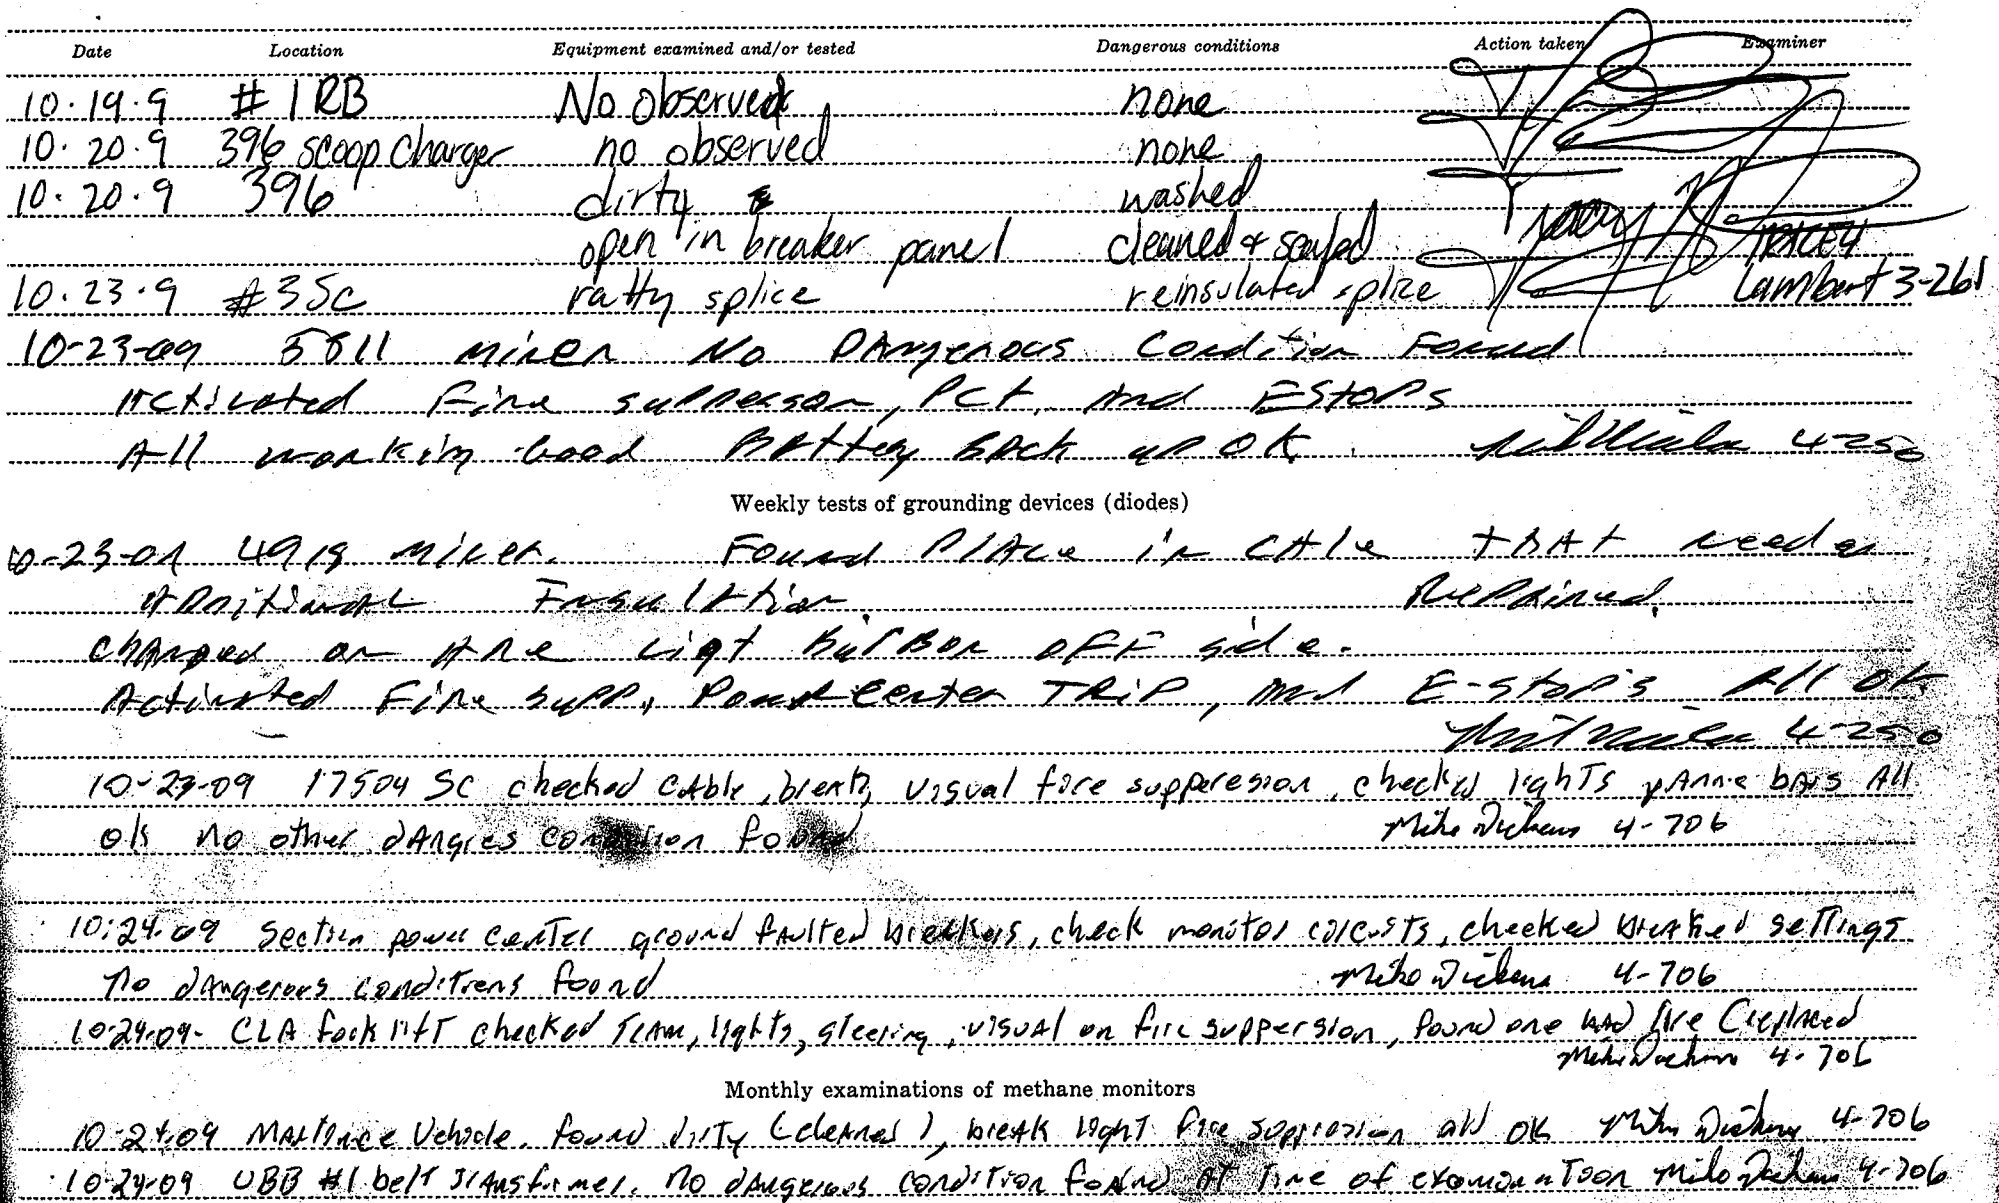 Date Location Equipment examined and/or tested Dangerous conditions Action taken Examiner
10·19·9 #1 RB No observed none
10·20·9 396 scoop charger no observed none
10·20·9 396 dirty washed
open in breaker panel cleaned & sealed Tracey TRACEY
10·23·9 #3 SC ratty splice reinsulated splice Lambert 3-261
10-23-09 5811 miner No DAngerous Condition Found
Activated Fire suppreson, PCt, And EStoPs
All working Good BAttery BAck up OK 4-250
Weekly tests of grounding devices (diodes)
10-23-09 4919 miner. Found PlAce in CAble tHAt needed
ADDitionAL InsulAtion. RePAired.
chAnged on Are Ligt BulB on oFF side.
ActivAted Fire supp., Power Center TRiP, And E-stop's All ok
4-250
10-23-09 17504 SC checked CAble, breAk, visual fire supperesion, checked lights pAnnic bArs All
ok no other dAngres condition found Mike Dickens 4-706
10-24-09 Section power center ground faulted breakers, check monitor circuits, checked breaker settings
No dangerous conditions found Mike Dickens 4-706
10-24-09- CLA fork lift checked TrAm, lights, steering, visual on fire suppersion, found one bad fire (replaced
Mike Dickens 4-706
Monthly examinations of methane monitors
10-24-09 Vehicle. found dirty (cleaned), breAk light fire suppression all OK Mike Dickens 4-706
10-24-09 UBB #1 belt transformer. No dangerous condition found At Time of examination Mike Dickens 4-706